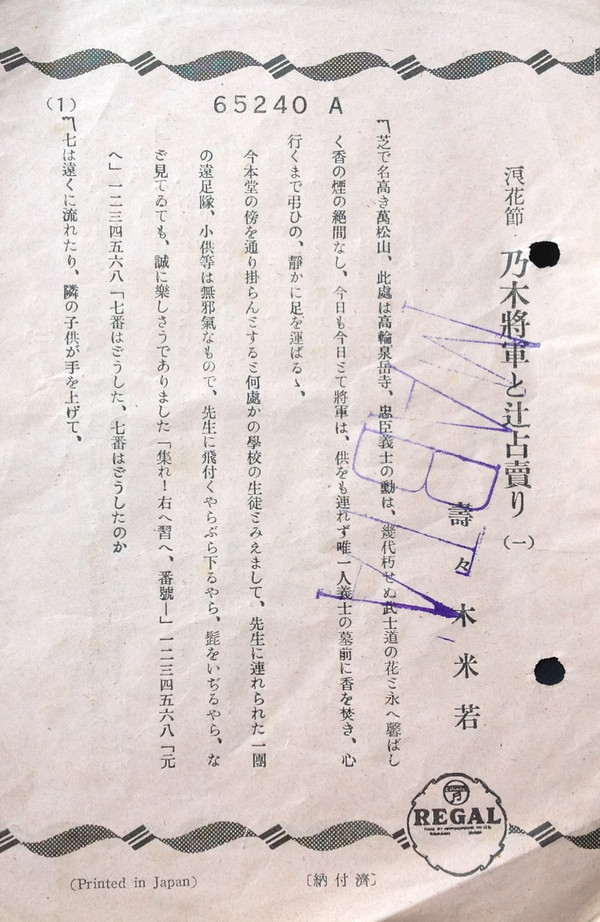 65240 A
浪花節 乃木將軍と辻占賣り (一)
壽々木米若
〽芝で名高き萬松山、此處は高輪泉岳寺、忠臣義士の勳は、幾代朽せぬ武士道の花と永へ馨ばし
く香の煙の絕間なし、今日も今日とて將軍は、供をも連れず唯一人義士の墓前に香を焚き、心
行くまで弔ひの、靜かに足を運ばるゝ、
今本堂の傍を通り掛らんとすると何處かの學校の生徒とみえまして、先生に連れられた一團
の遠足隊、小供等は無邪氣なもので、先生に飛付くやらぶら下るやら、髭をいぢるやら、な
ど見てゐても、誠に樂しさうでありました「集れ!右へ習へ、番號ー」一二三四五六八「元
へ」一二三四五六八「七番はどうした、七番はどうしたのか
〽七は遠くに流れたり、隣の子供が手を上げて、
(1)
MABITA
REGAL
(Printed in Japan)
〔納付濟〕